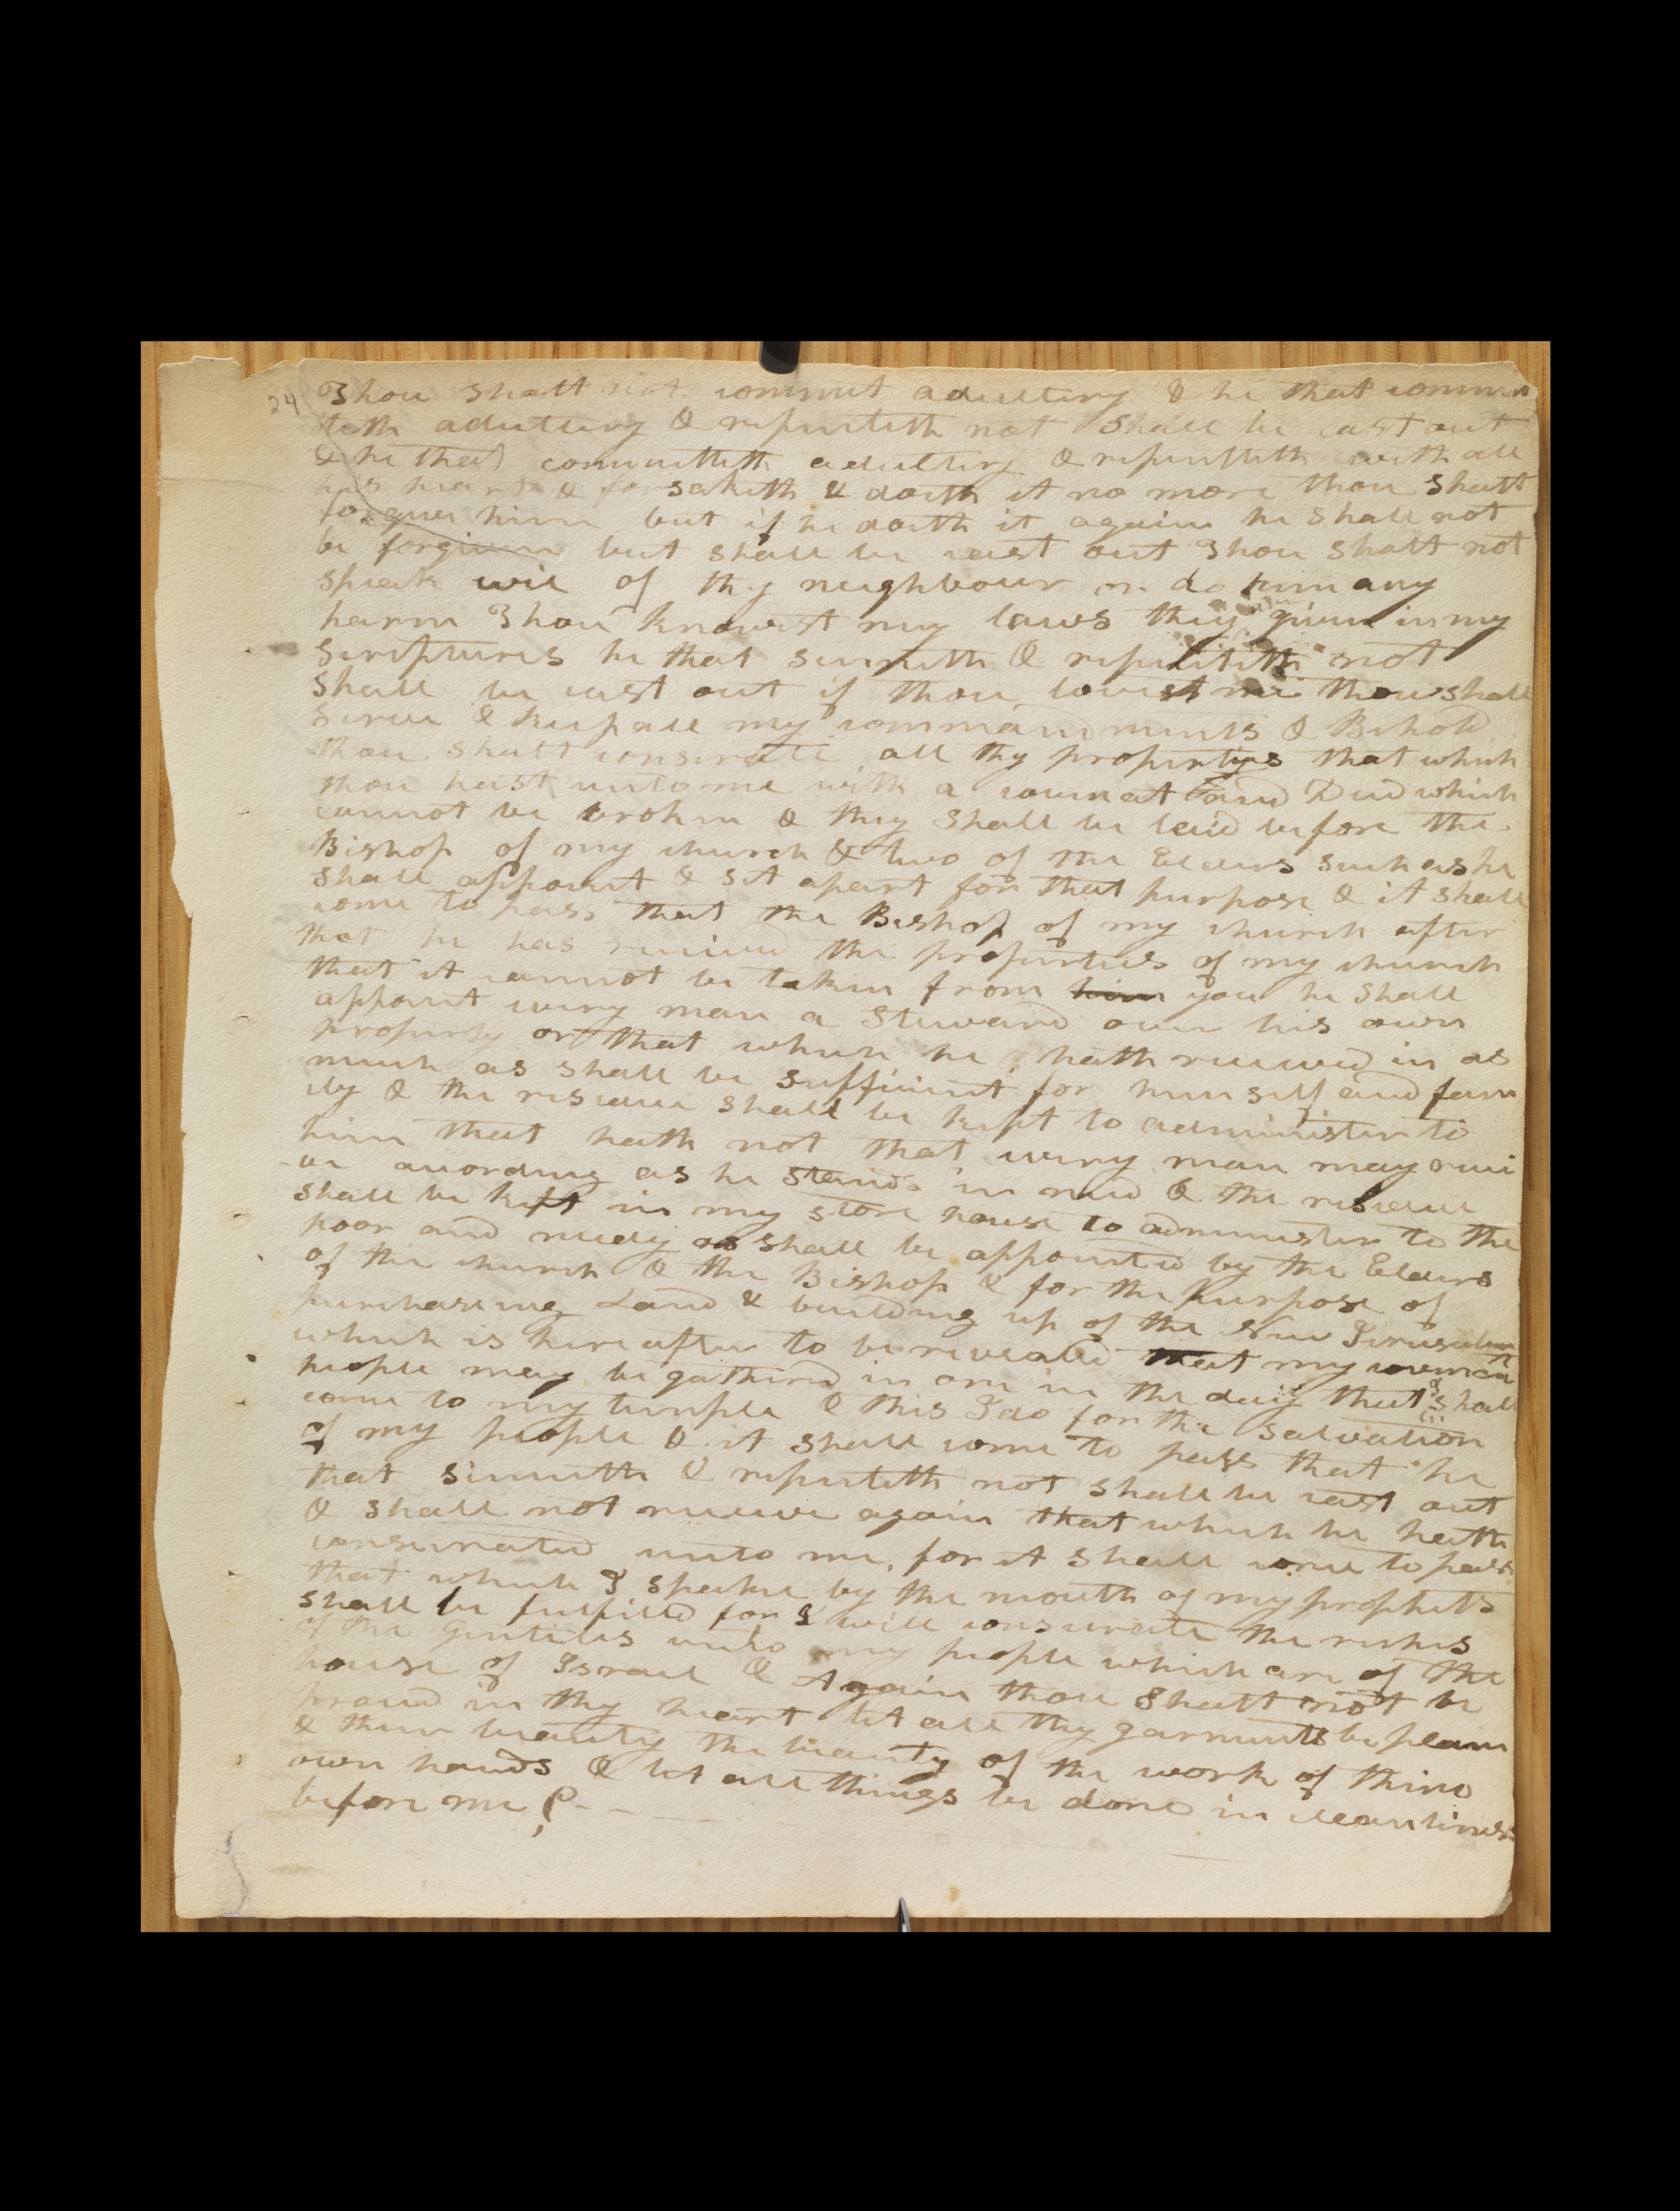 24 Thou shalt not commit adultery & he that commit
teth adultery & repenteth not shall be cast out
& he that committeth adultery & repenteth with all
his heart & forsaketh & doeth it no more thou shalt
forgive him but if he doeth it again he shall not
be forgiven but shall be cast out Thou shalt not
speak evil of thy neighbour or do him any
harm Thou knowest my laws they are given in my
Scriptures he that sinneth & repenteth not
shall be cast out if thou lovest me thou shalt
serve & keep all my commandments & Behold
thou shalt consecrate all thy propertys that which
thou hast unto me with a covena[n]t and Deed which
cannot be broken & they shall be laid before the
Bishop of my church & two of the Elders such as he
shall appoint & set apart for that purpose & it shall
come to pass that the Bishop of my church after
that he has received the properties of my church
that it cannot be taken from him you he shall
appoint every man a Steward over his own
property or that which he hath received in as
much as shall be sufficient for himself and fam
ily & the residue shall be kept to administer to
him that hath not that every man may recei
ve according as he stands in need & the residue
shall be kept in my store house to administer to the
poor and needy as shall be appointed by the Elders
of the church & the Bishop & for the purpose of
purchaseing Land & building up of the New Jerusalem
which is hereafter to be revealed that my covenant
people may be gathered in one in the day that I shall
come to my temple & this I do for the salvation
of my people & it shall come to pass that he
that sinneth & repenteth not shall be cast out
& shall not receive again that which he hath
consecrated unto me, for it shall come to pass
that which I spake by the mouth of my prophets
shall be fulfilled for I will consecrate the riches
of the gentiles unto my people which are of the
house of Israel & Again thou shalt not be
proud in thy heart let all thy garments be plain
& their beauty the beauty of the work of thine
own hands & let all things be done in cleanliness
before me